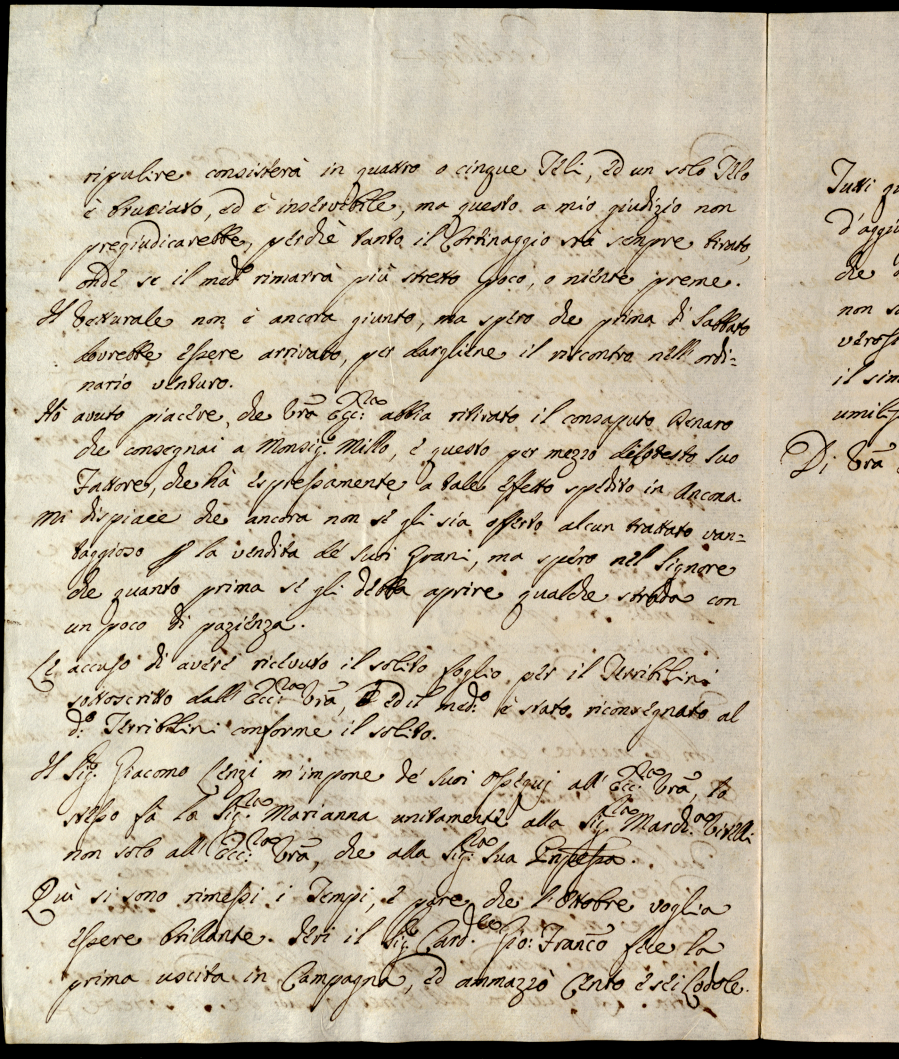 ripulire consisterà in quattro o cinque Teli, ed un solo Telo
è bruciato, ed è inservibile, ma questo a mio giudizio non
pregiudicarebbe, perchè tanto il Cortinaggio stà sempre tirato,
onde se il med.º rimarrà più stretto poco, o niente preme.
Il Vetturale non è ancora giunto, ma spero che prima di Sabbato
dovrebbe essere arrivato, per dargliene il riscontro nell'ordi=
nario venturo.
Hò avuto piacere, che Vr̃a Ecc:za abbia ritirato il consaputo Denaro
che consegnai a Monsig.r Millo, e questo per mezzo dello stesso suo
Fattore, che hà espressamente a tale effetto spedito in Ancona.
Mi dispiace che ancora non se gli sia offerto alcun trattato van=
taggioso p la vendita de suoi Grani, ma spero nel Signore
che quanto prima se gli debba aprire qualche strada con
un poco di pazienza.
Le accuso di avere ricevuto il solito foglio per il Terribilini
sottoscritto dall'Ecc:za Vr̃a, ed il med.º è stato riconsegnato al
d.º Terribilini conforme il solito.
Il Sig.r Giacomo Cenzi m'impone de suoi ossequj all'Ecc:za Vr̃a, lo
stesso fà la Sig.ra Marianna unitamente alla Sig.ra March.
non solo all'Ecc:za Vr̃a, che alla Sig.ra sua
Quì si sono rimessi i Tempi, e pare che l'Ottobre voglia
essere brillante. Ieri il Sig. Card.le Gio: Franc̃o fece la
prima uscita in Campagna, ed ammazzò Cento e sei Lodole.
Tutti
d'aggi
che
non s
veros
il sim
umiliss
Di Vr̃a